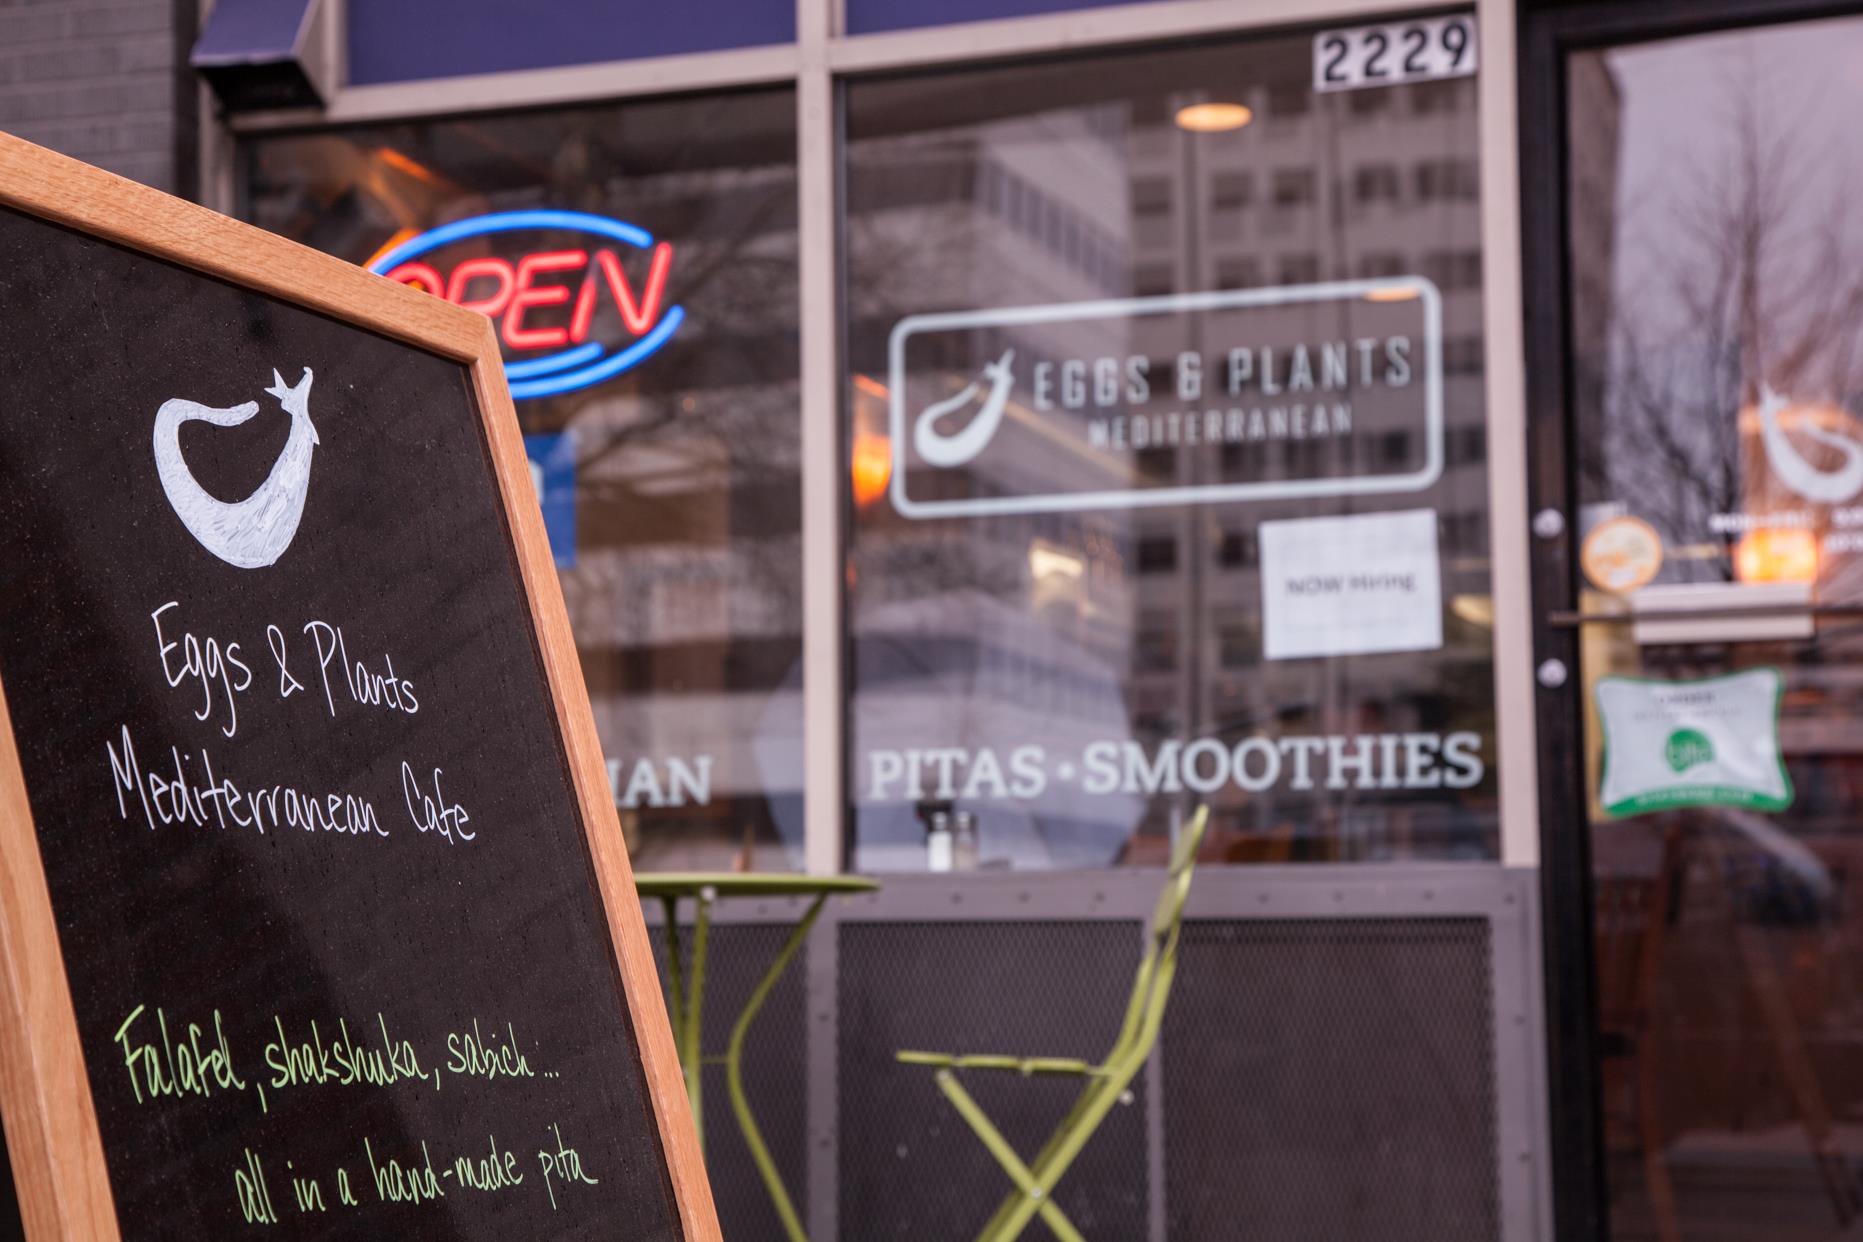 2229
OPEN
EGGS & PLANTS
MEDITERRANEAN
NOW Hiring
PITAS • SMOOTHIES
Eggs & Plants
Mediterranean Cafe
Falafel, shakshuka, sabich...
all in a hand-made pita